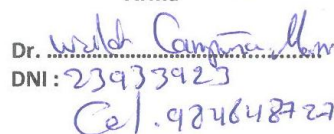 Dr. Waldo Campaña
DNI: 23933923
Cel. 984648727